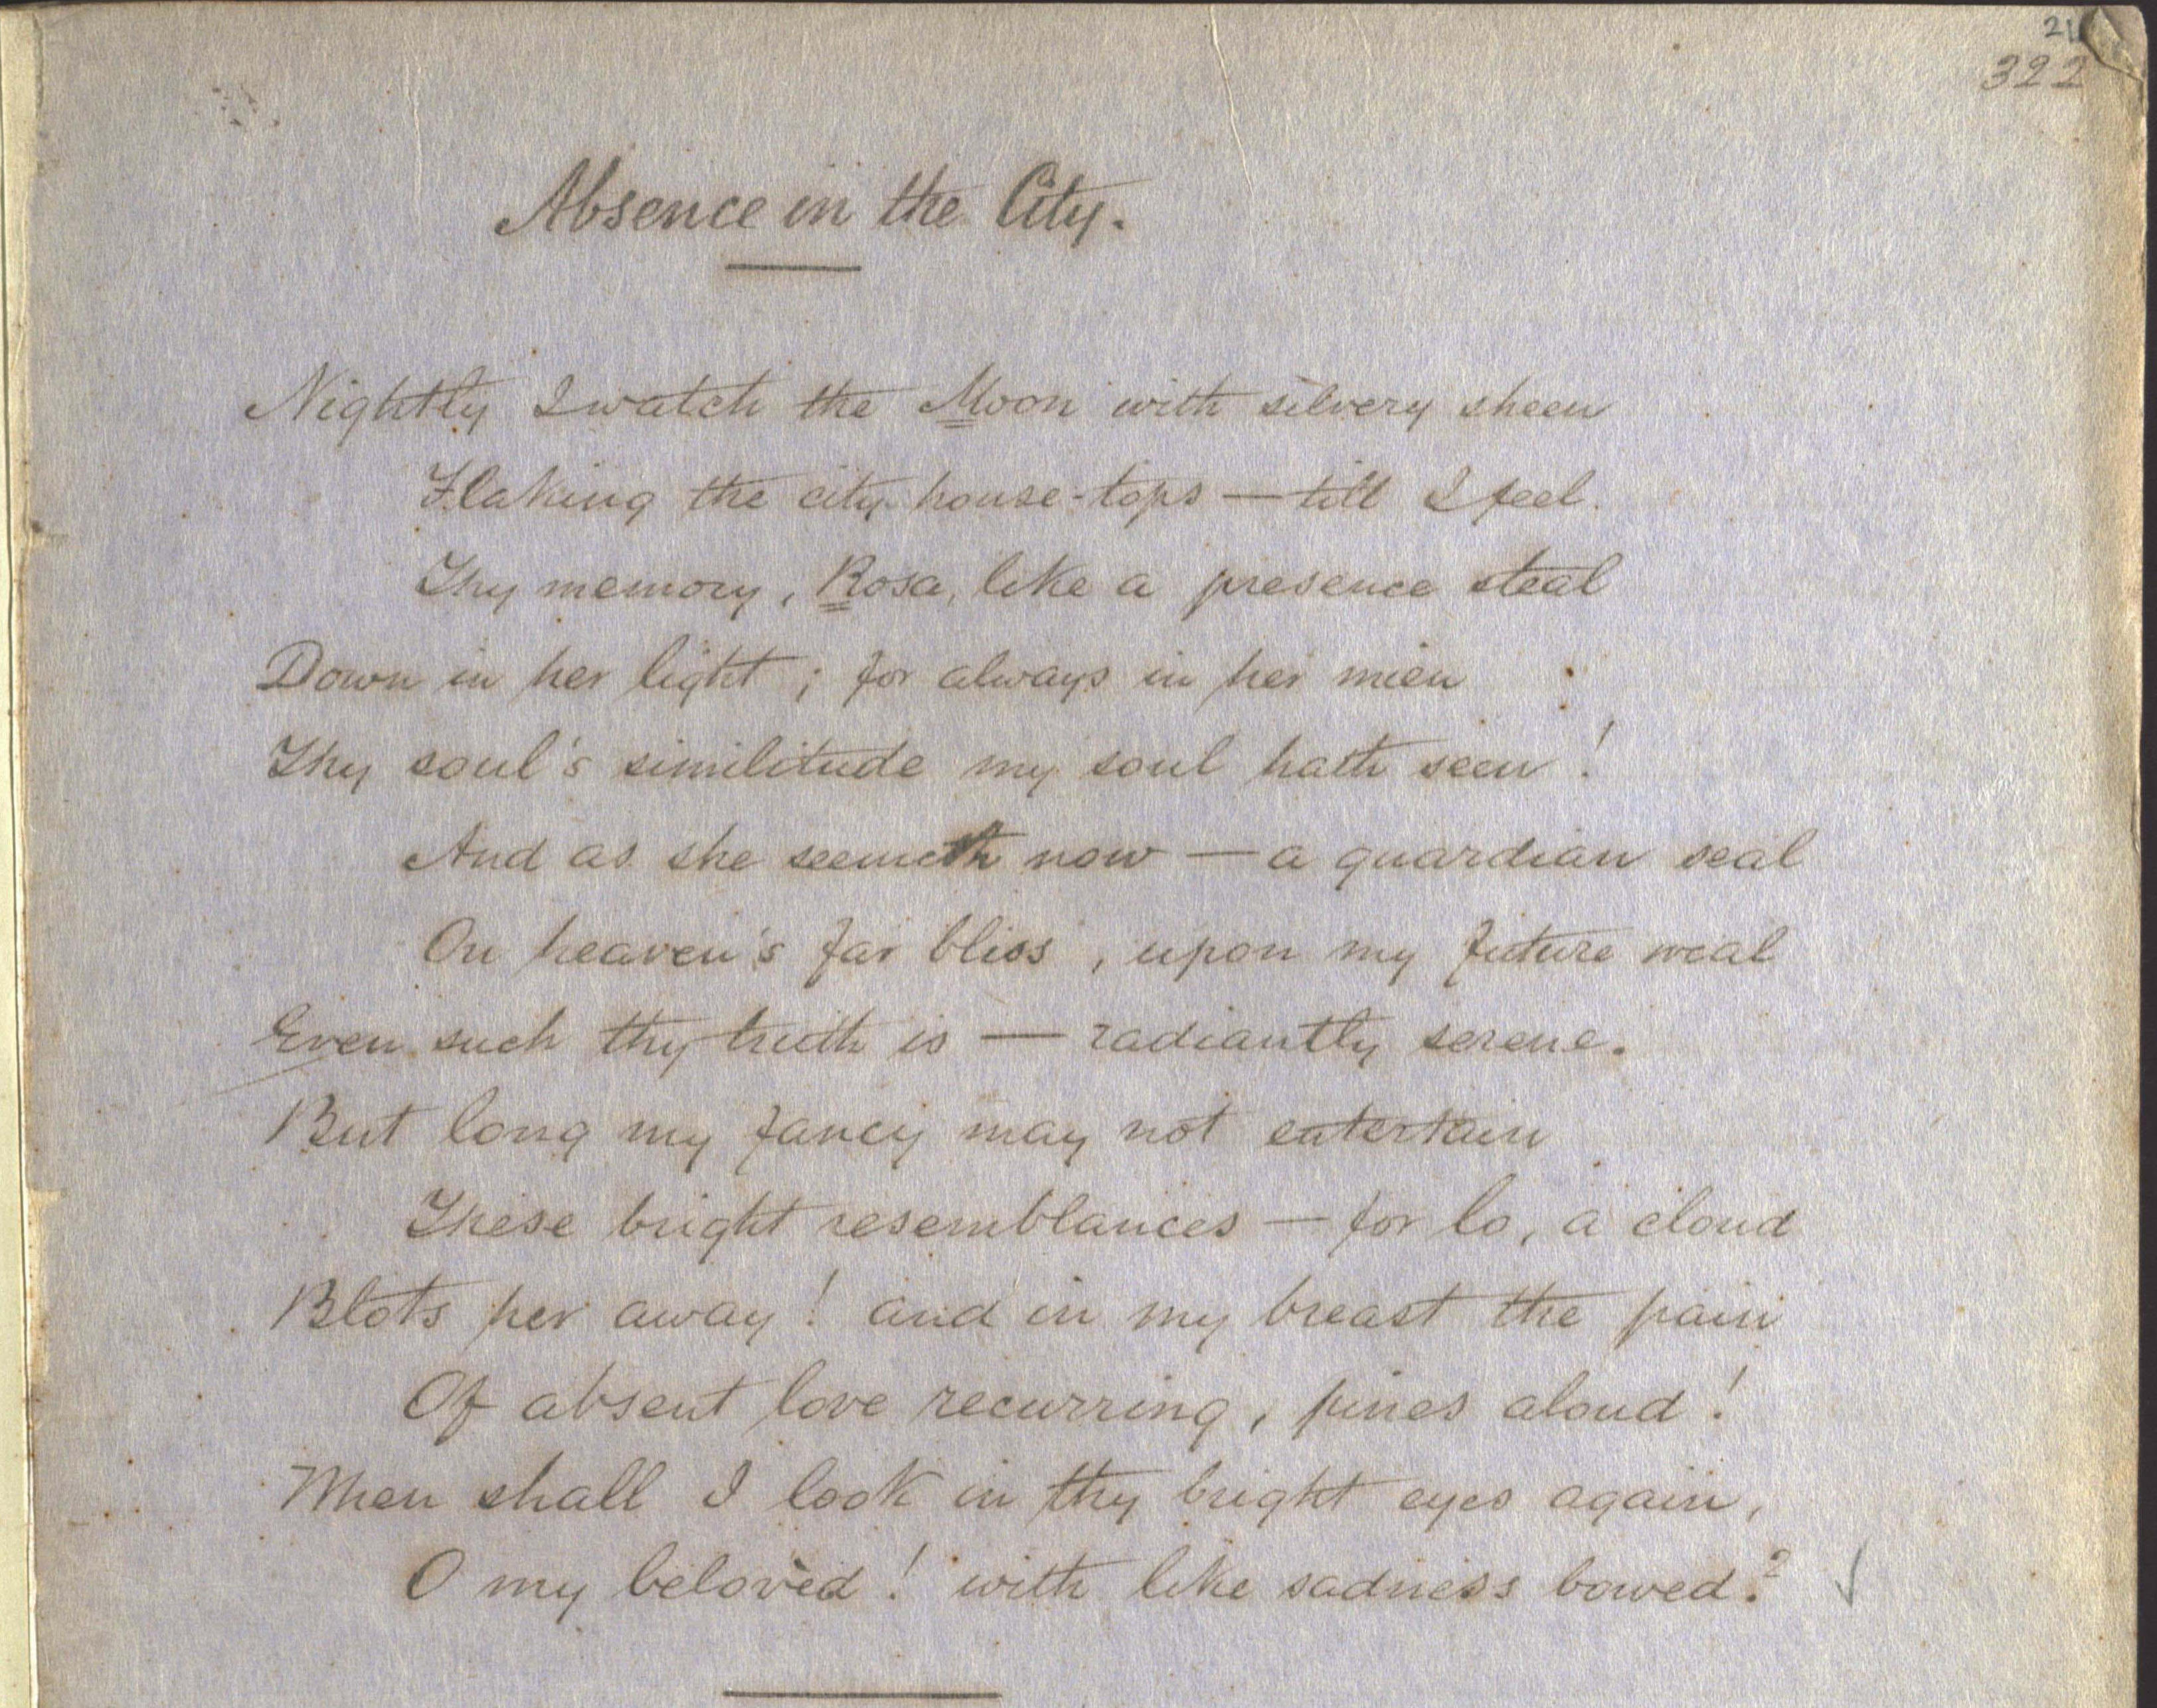 21
322
Absence in the City.
Nightly I watch the Moon with silvery sheen
Flaking the city house-tops — till I feel.
Thy memory, Rosa, like a presence steal
Down in her light; for always in her mien
Thy soul's similitude my soul hath seen!
And as she seemeth now — a guardian seal
On heaven's far bliss, upon my future weal
Even such thy truth is — radiantly serene.
But long my fancy may not entertain
These bright resemblances — for lo, a cloud
Blots her away! and in my breast the pain
Of absent love recurring, pines aloud!
When shall I look in thy bright eyes again,
O my belovèd! with like sadness bowed?